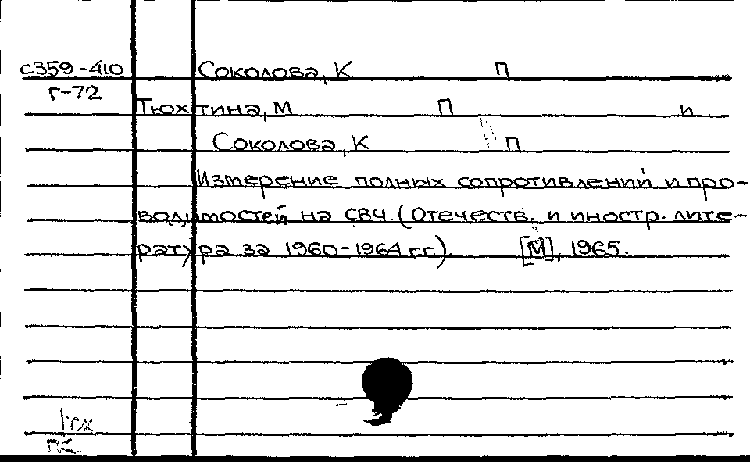 с359-410 Соколова, К П
г-72
Тюхтина, М П и
Соколова, К П
Измерение полных сопротивлений и про-
водимостей на СВЧ. (Отечеств. и иностр. лите-
ратура за 1960-1964 гг.) [М], 1965.